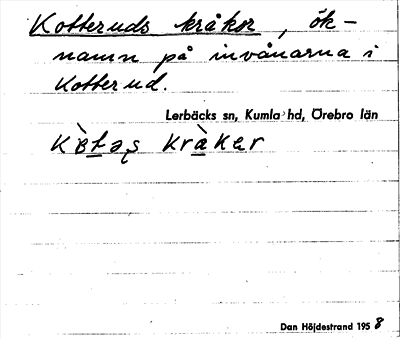 Kotteruds kråkor, ök-
namn på invånarna i
Kotterud.
Lerbäcks sn, Kumla hd, Örebro län
kråker
Dan Höjdestrand 1958